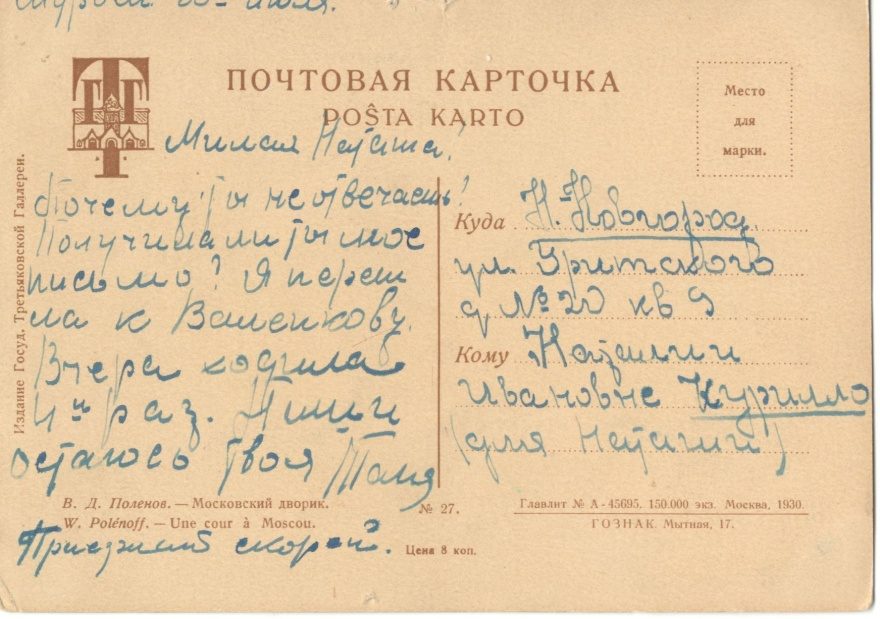 июля.
ПОЧТОВАЯ КАРТОЧКА
POŜTA KARTO
Место
для
марки.
Издание Госуд. Третьяковской Галлереи.
Милая Наташа!
Почему ты не отвечаешь?
Получила ли ты мое
письмо? Я переш
ла к Валенкову.
Вчера ходила
1ый раз. Пиши
остаюсь твоя Таня
Куда Н.-Новгород
ул. Урицкого
д № 20 кв 9
Кому Наталии
Ивановне Курилло
(для Наталии)
В. Д. Поленов. — Московский дворик.
W. Polénoff. — Une cour à Moscou.
№ 27.
Главлит № А - 45695. 150.000 экз. Москва, 1930.
ГОЗНАК. Мытная, 17.
Приезжай скорей.
Цена 8 коп.